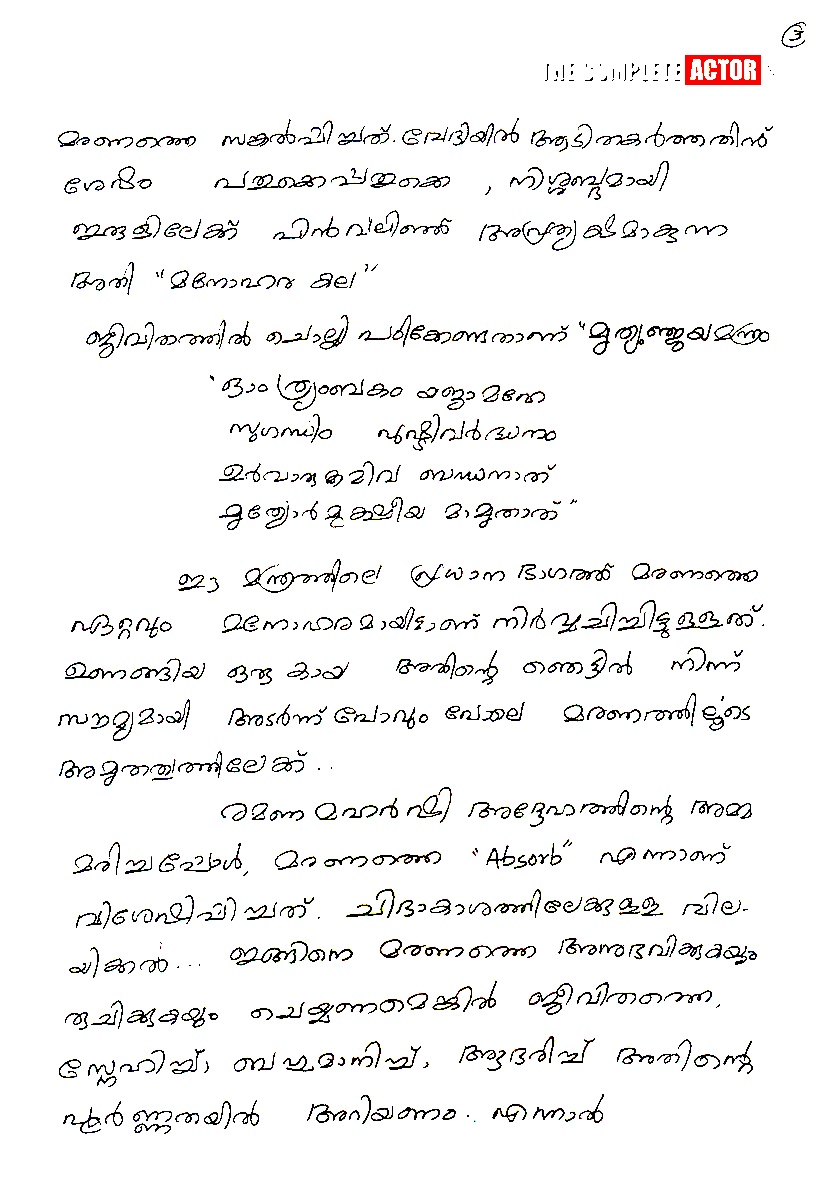 3
THE COMPLETE ACTOR
മരണത്തെ സങ്കൽപിച്ചത്. വേദിയിൽ ആടിതകർത്തതിന്
ശേഷം പതുക്കെപ്പതുക്കെ , നിശ്ശബ്ദമായി
ഇരുളിലേക്ക് പിൻവലിഞ്ഞ് അപ്രത്യക്ഷമാകുന്ന
അതി "മനോഹര കല"
ജീവിതത്തിൽ ചൊല്ലി പഠിക്കേണ്ടതാണ് "മൃത്യുഞ്ജയമന്ത്രം
"ഓം ത്ര്യംബകം യജാമഹേ
സുഗന്ധിം പുഷ്ടിവർദ്ധനം
ഉർവാരുകമിവ ബന്ധനാത്
മൃത്യോർമുക്ഷീയ മാമൃതാത്"
ഈ മന്ത്രത്തിലെ പ്രധാന ഭാഗത്ത് മരണത്തെ
ഏറ്റവും മനോഹരമായിട്ടാണ് നിർവ്വചിച്ചിട്ടുള്ളത്.
ഉണങ്ങിയ ഒരു കായ അതിന്റെ ഞെട്ടിൽ നിന്ന്
സൗമ്യമായി അടർന്ന് പോവും പോലെ മരണത്തിലൂടെ
അമൃതത്വത്തിലേക്ക് ..
രമണ മഹർഷി അദ്ദേഹത്തിന്റെ അമ്മ
മരിച്ചപ്പോൾ, മരണത്തെ "Absorb" എന്നാണ്
വിശേഷിപ്പിച്ചത്. ചിദാകാശത്തിലേക്കുള്ള വില-
യിക്കൽ... ഇങ്ങിനെ മരണത്തെ അനുഭവിക്കുകയും
രുചിക്കുകയും ചെയ്യണമെങ്കിൽ ജീവിതത്തെ,
സ്നേഹിച്ച്, ബഹുമാനിച്ച്, ആദരിച്ച് അതിന്റെ
പൂർണ്ണതയിൽ അറിയണം.. എന്നാൽ